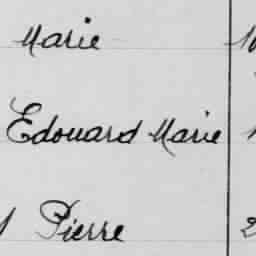 Marie
Edouard Marie
Pierre